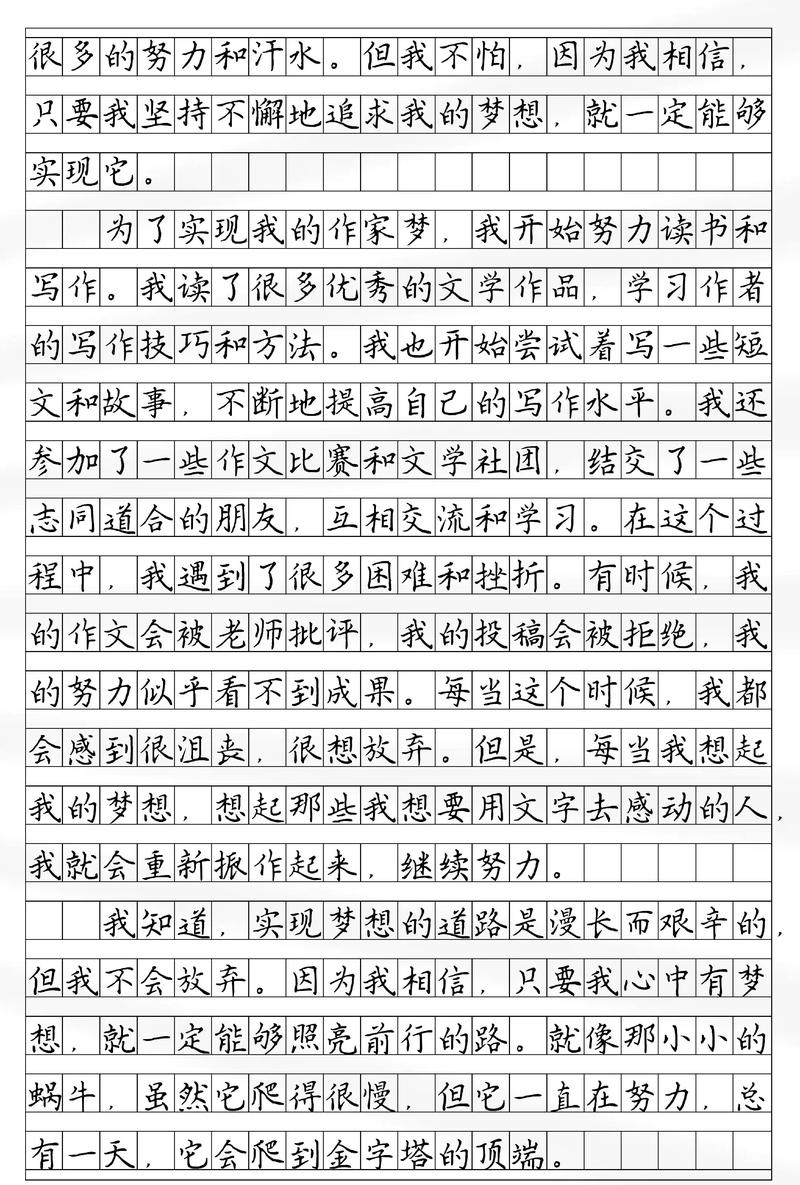 很多的努力和汗水。但我不怕，因为我相信，
只要我坚持不懈地追求我的梦想，就一定能够
实现它。
为了实现我的作家梦，我开始努力读书和
写作。我读了很多优秀的文学作品，学习作者
的写作技巧和方法。我也开始尝试着写一些短
文和故事，不断地提高自己的写作水平。我还
参加了一些作文比赛和文学社团，结交了一些
志同道合的朋友，互相交流和学习。在这个过
程中，我遇到了很多困难和挫折。有时候，我
的作文会被老师批评，我的投稿会被拒绝，我
的努力似乎看不到成果。每当这个时候，我都
会感到很沮丧，很想放弃。但是，每当我想起
我的梦想，想起那些我想要用文字去感动的人，
我就会重新振作起来，继续努力。
我知道，实现梦想的道路是漫长而艰辛的，
但我不会放弃。因为我相信，只要我心中有梦
想，就一定能够照亮前行的路。就像那小小的
蜗牛，虽然它爬得很慢，但它一直在努力，总
有一天，它会爬到金字塔的顶端。